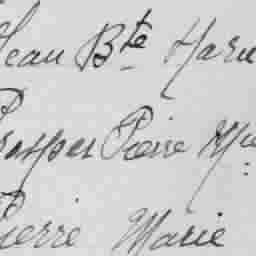 Jean Bte Marie
Prosper Pierre Mie
Pierre Marie